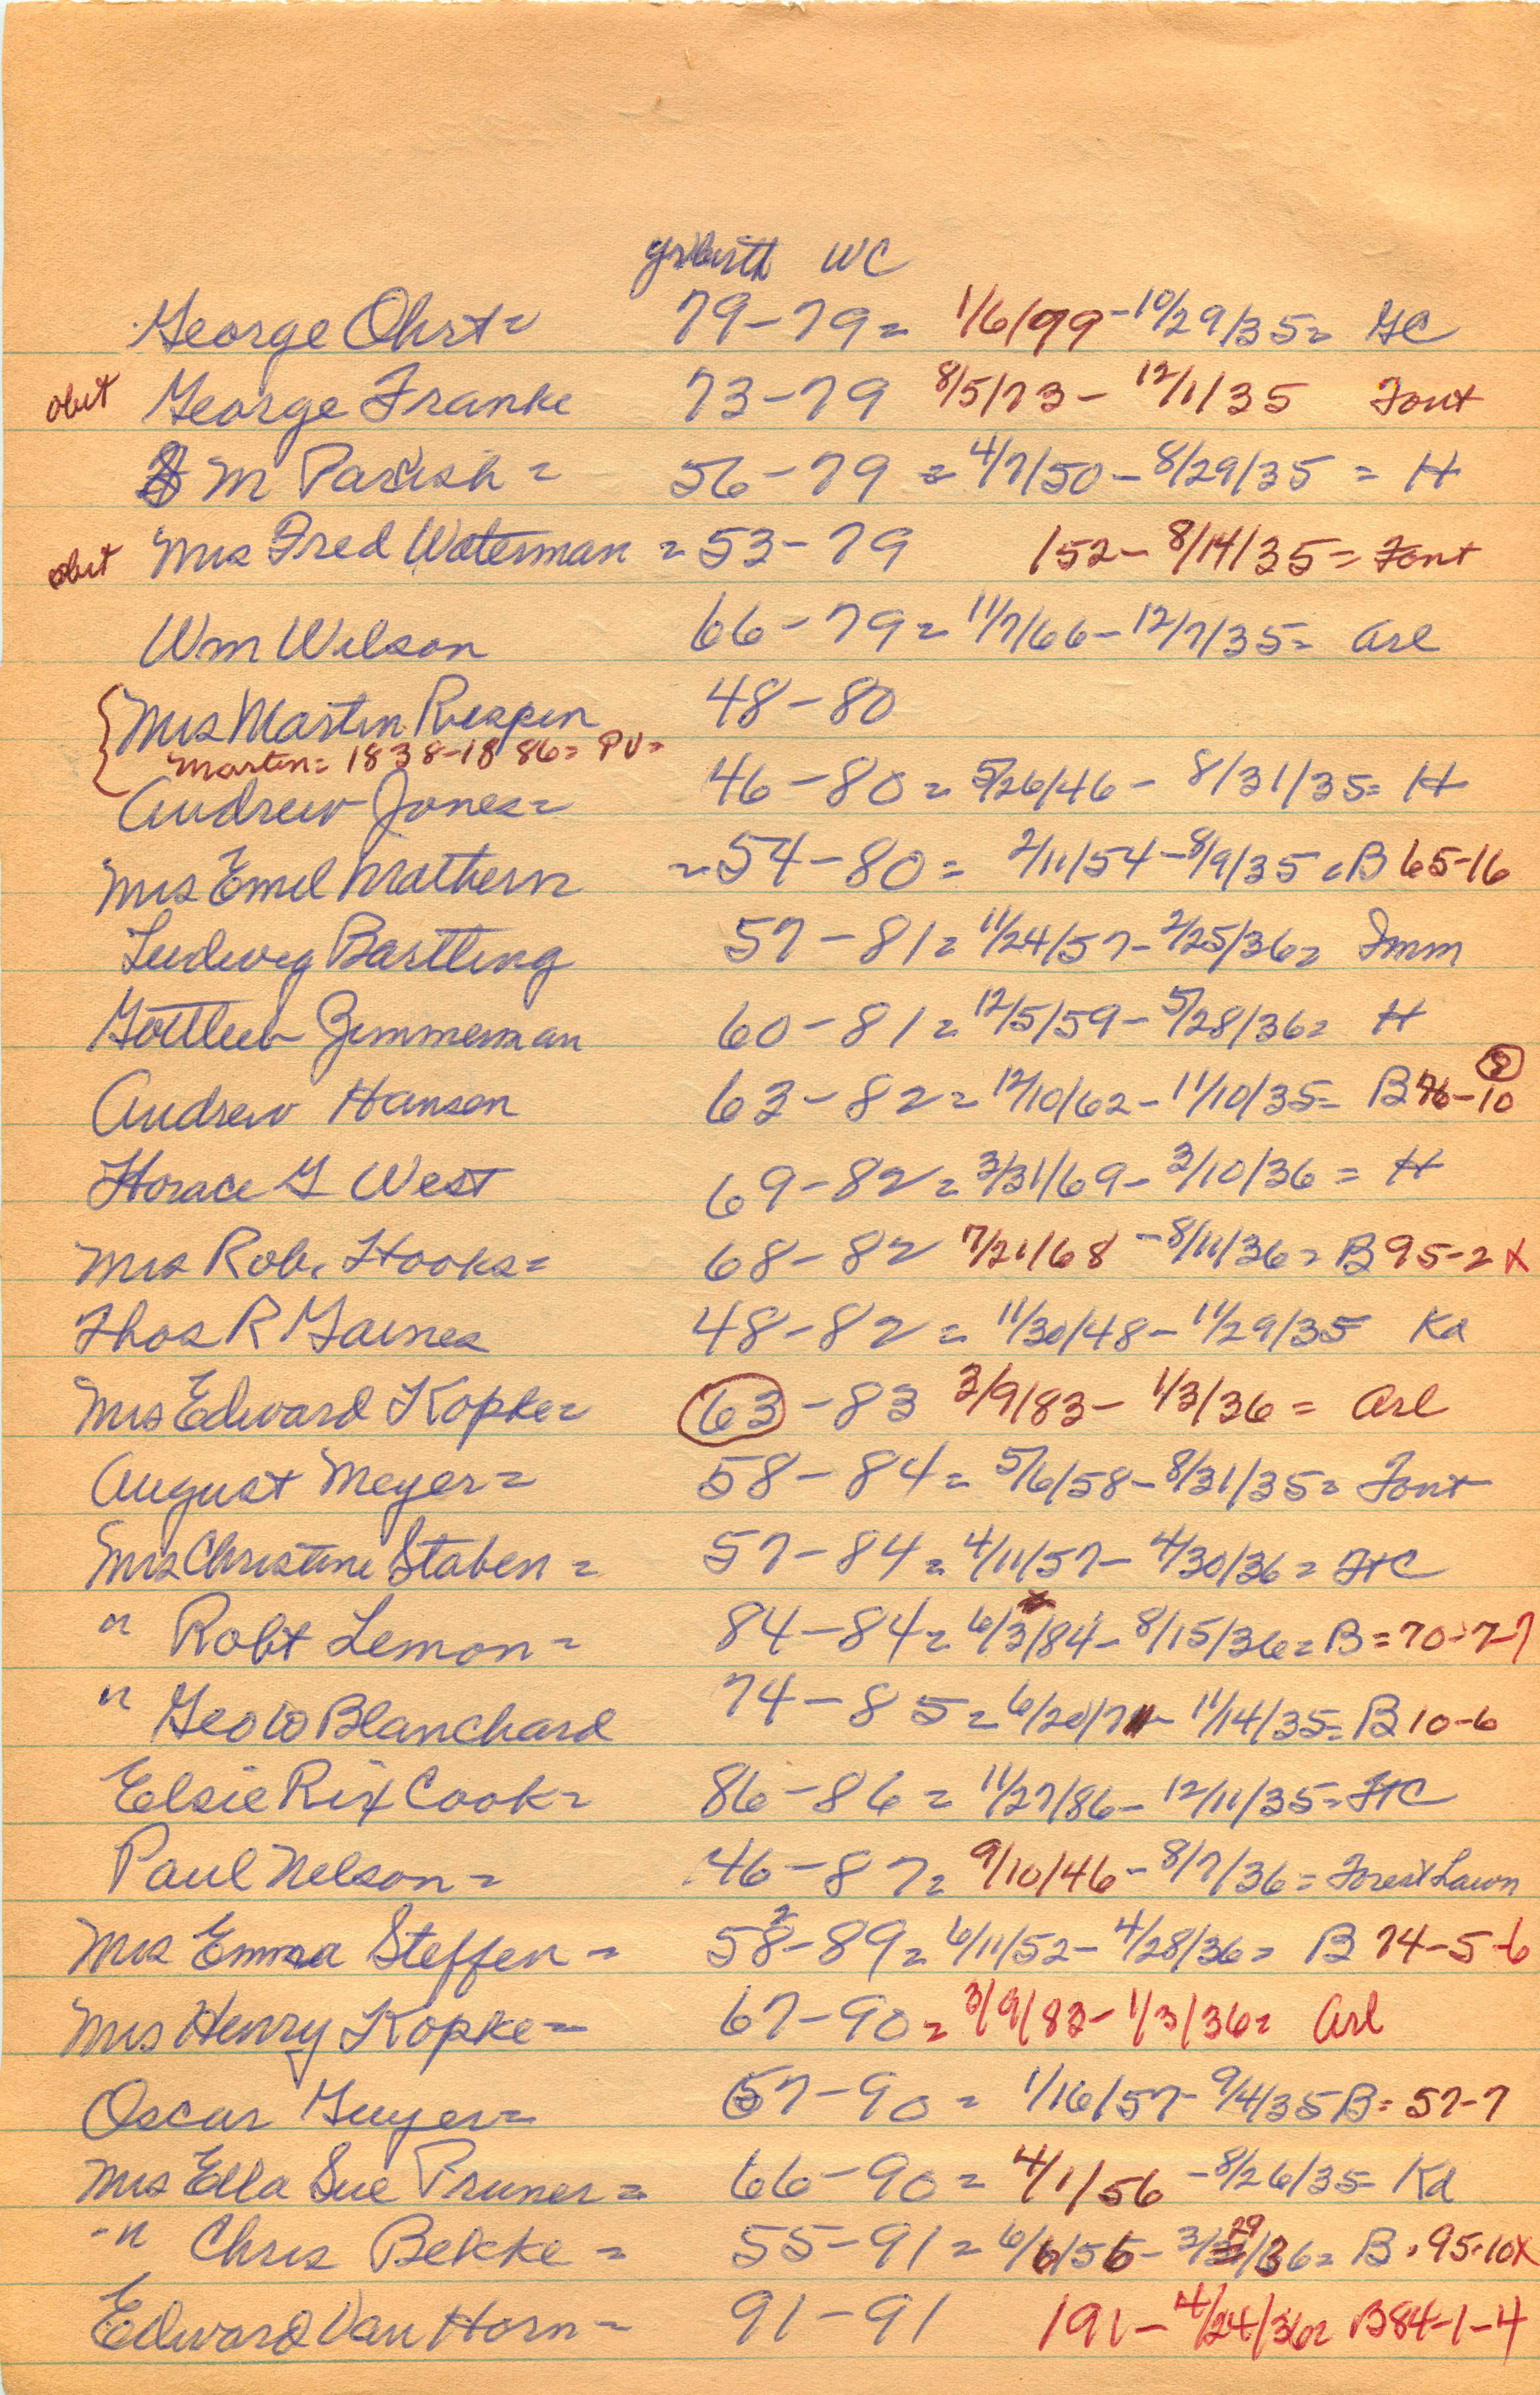 yr birth WC
George Ohrt = 79-79 = 1/6/99-10/29/35 = GC
obit George Franke 73-79 8/5/73-12/1/35 Font
M Parish = 56-79 = 4/7/50-8/29/35 = H
obit Mrs Fred Waterman = 53-79 152-8/14/35 = Font
Wm Wilson 66-79 = 11/7/66-12/7/35 = Arl
Mrs Martin Riespen 48-80
Martin = 1838-1886 = PV =
Andrew Jones = 46-80 = 5/26/46-8/31/35 = H
Mrs Emil Mathern = 54-80 = 2/11/54-8/9/35 = B 65-16
Ludwig Bastling 57-81 = 11/24/57-2/25/36 = Imm
Gottlieb Zimmerman 60-81 = 12/5/59-5/28/36 = H
Andrew Hansen 63-82 = 12/10/62-11/10/35 = B 76-10
Horace G West 69-82 = 3/31/69-3/10/36 = H
Mrs Rob. Hooks = 68-82 7/21/68-8/11/36 = B 95-2 X
Thos R Gaines 48-82 = 11/30/48-11/29/35 Kd
Mrs Edward Kopke = 63-83 3/9/83-1/3/36 = Arl
August Meyer = 58-84 = 5/6/58-8/31/35 = Font
Mrs Christine Staben = 57-84 = 4/11/57-4/30/36 = HC
" Robt Lemon = 84-84 = 6/3/84-8/15/36 = B = 70-7-7
" Geo W Blanchard 74-85 = 6/20/7 11/14/35 = B 10-6
Elsie Rix Cook = 86-86 = 11/27/86-12/11/35 = HC
Paul Nelson = 46-87 = 9/10/46-8/7/36 = Forest Lawn
Mrs Emma Steffen = 582-89 = 6/11/52-4/28/36 = B 74-5-6
Mrs Henry Kopke = 67-90 = 3/9/83-1/3/36 = Arl
Oscar Guyer = 57-90 = 1/16/57-9/4/35 B = 57-7
Mrs Ella Sue Pruner = 66-90 = 4/1/56-8/26/35 = Kd
" Chris Bekke = 55-91 = 6/6/56-3/29/36 = B . 95-10X
Edward Van Horn = 91-91 191-4/24/36 = B84-1-4